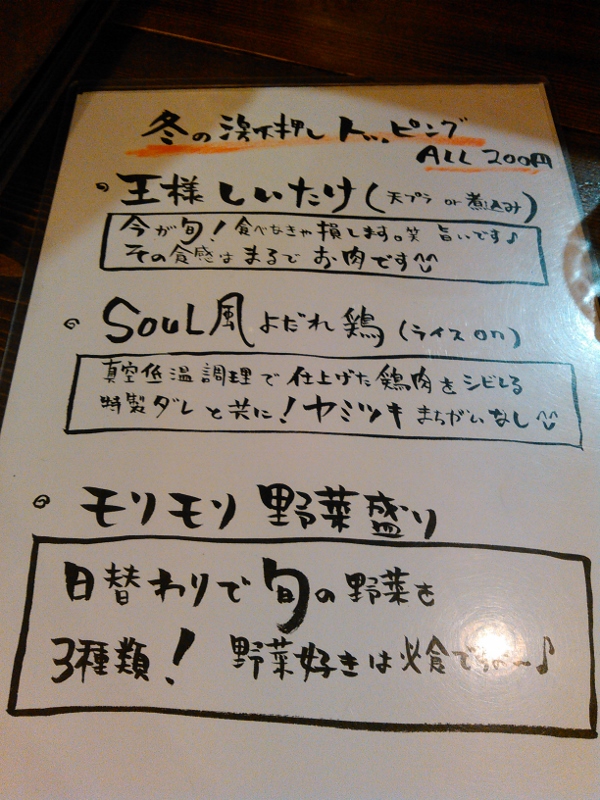 冬の激押しトッピング
ALL 200円
王様しいたけ(天プラ or 煮込み)
今が旬！食べなきゃ損します。笑 旨いです♪
その食感はまるでお肉です^^
SOUL風よだれ鶏(ライスon)
真空低温調理で仕上げた鶏肉をシビレる
特製ダレと共に！ヤミツキまちがいなし^^
モリモリ野菜盛り
日替わりで旬の野菜を
3種類！ 野菜好きは必食ですよ〜♪